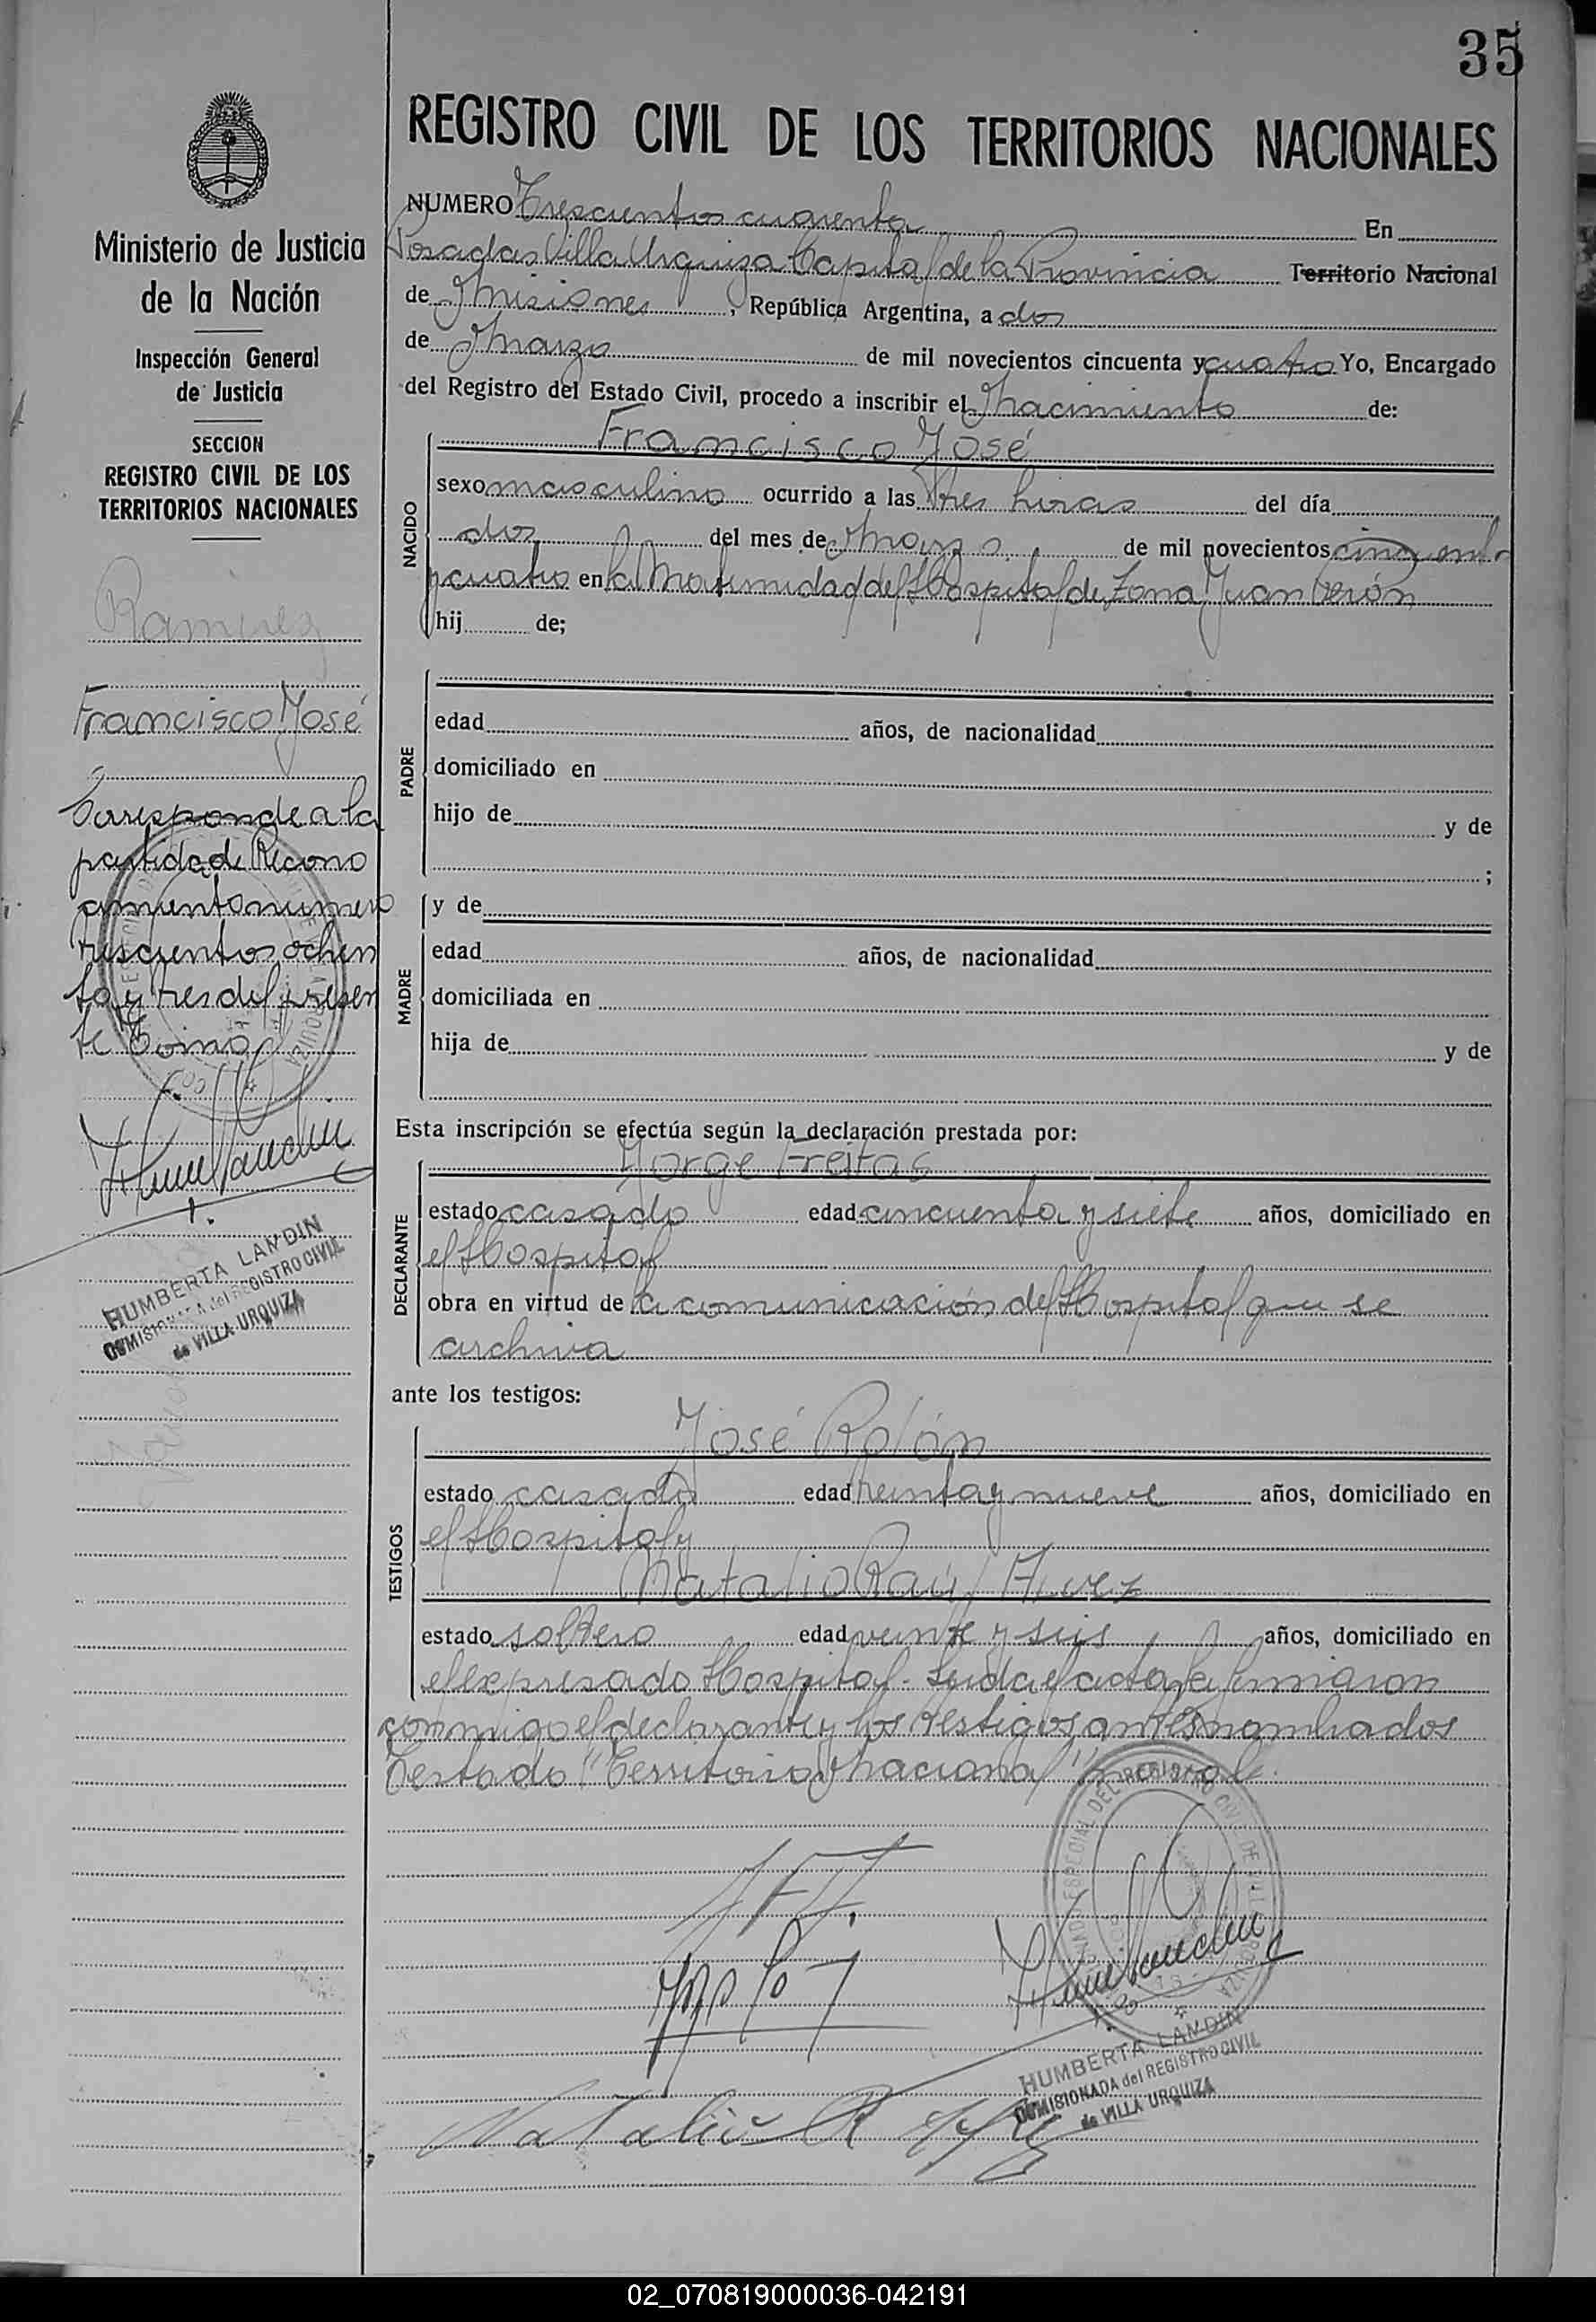 35
REGISTRO CIVIL DE LOS TERRITORIOS NACIONALES
Ministerio de Justicia
de la Nación
Inspección General
de Justicia
SECCION
REGISTRO CIVIL DE LOS
TERRITORIOS NACIONALES
Ramirez
Francisco José
Corresponde a la
partida de Recono
cimiento numero
trescientos ochen
ta y tres del presen
te Tomo
HUMBERTA LANDIN
COMISIONADA del REGISTRO CIVIL
de VILLA URQUIZA
NUMERO Trescientos cuarenta En
Posadas Villa Urquiza Capital de la Provincia Territorio Nacional
de Misiones, República Argentina, a dos
de Marzo de mil novecientos cincuenta y cuatro Yo, Encargado
del Registro del Estado Civil, procedo a inscribir el Nacimiento de:
NACIDO
Francisco José
sexo masculino ocurrido a las tres horas del día
dos del mes de Marzo de mil novecientos cincuenta
y cuatro en la Maternidad del Hospital de Zona Juan Perón
hij de;
PADRE
edad años, de nacionalidad
domiciliado en
hijo de y de
;
MADRE
y de
edad años, de nacionalidad
domiciliada en
hija de y de
Esta inscripción se efectúa según la declaración prestada por:
DECLARANTE
Jorge Freitas
estado casado edad cincuenta y siete años, domiciliado en
el Hospital
obra en virtud de la comunicación del Hospital que se
archiva
ante los testigos:
TESTIGOS
José Rolón
estado casado edad treinta y nueve años, domiciliado en
el Hospital y
Natalio Raúl
estado soltero edad veinte y seis años, domiciliado en
el expresado Hospital. Leida el acta la firmaron
conmigo el declarante y los testigos antes nombrados
Testado "Territorio Nacional" no vale.
Natalio R
HUMBERTA LANDIN
COMISIONADA del REGISTRO CIVIL
de VILLA URQUIZA
02_070819000036-042191